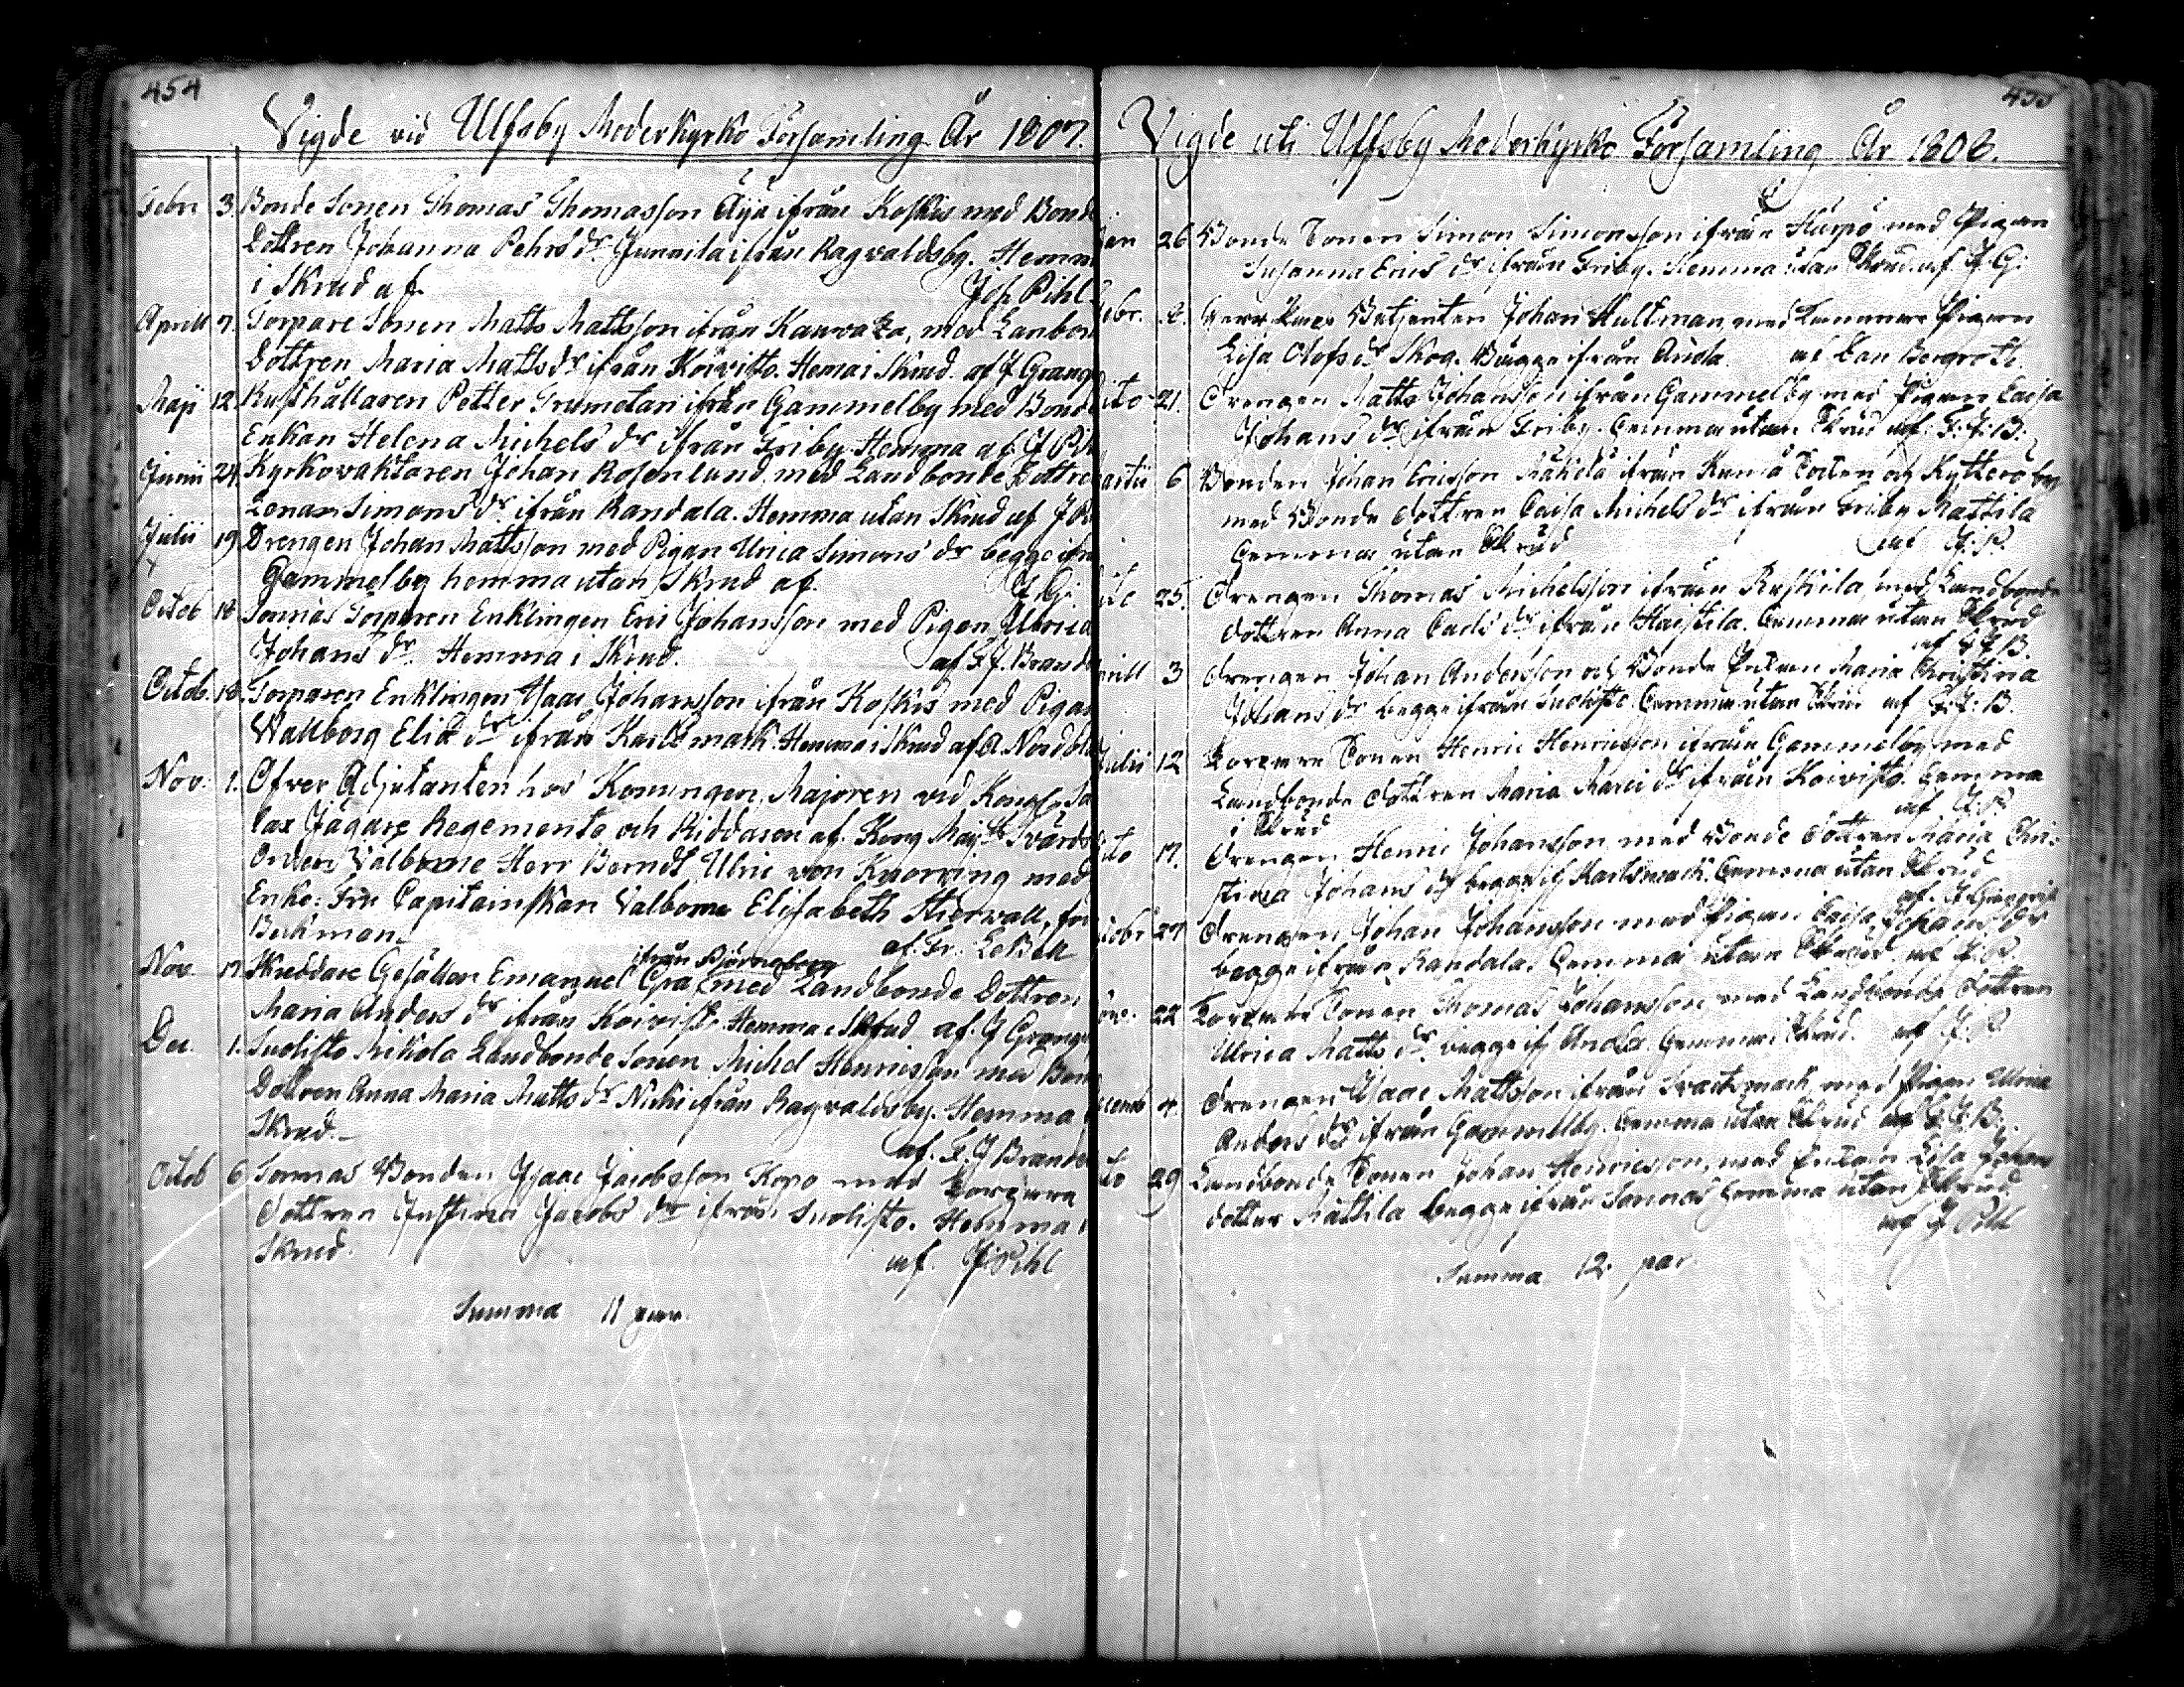 454
Vigde vid Ulfsby Moderkyrko Församling År 1807.
Febr 3. Bonde Sonen Thomas Thomasson Äijä ifrån Koskis med Bond
Dottren Johanna Pehrs dr Junnila ifrån Ragvaldsby. Hemm
i Skrud af Jos. Pihl
Aprill 7. Torpare Sonen Matts Mattsson ifrån Kaurataa, med Lanbon
Dottren Maria Matts dr ifrån Koivisto. Hema i Skrud. af J Grang
Maji 12. Rusthållaren Petter Trumetari ifrån Gammelby med Bond
Enkan Helena Michels dr ifrån Friby Hemma af J Pih
Junii 24. Kyrkovaktaren Johan Rosenlund med Landbonde Dottre
Lena Simons dr ifrån Randala. Hemma utan Skrud af J P
Julii 19 Drengen Johan Mattsson med Pigan Ulrica Simons dr begge ifrå
Gammelby hemma utan Skrud af J. G.
Octob 18 Sonnäs Torparen Enklingen Eric Johansson med Pigan Ulrica
Johans dr. Hemma i Skrud. af F. J. Brand
Octob. 18. Torparen Enklingen Isaac Johansson ifrån Koskis med Pigan
Wallborg Elia dr ifrån Karlsmark. Hemma i Skrud af A. Nordbl
Nov. 1. Ofver Adjutanten hos Konungen, Majoren vid Kongl.
lax Jägare Regemente och Riddaren af Kong Maj:ts Svärds
Orden Välborne Herr Berndt Ulric von Knorring med
Enke Fru Capitainskan Valborna Elisabeth Stiervall, fod
Beckman. af. Fr. LeBell
Nov. 17. Skreddare Gesällen Emanuel Gra ifrån Björneborg med Landbonde Dottren
Maria Anders dr ifrån Koivisto Hemma i Skrud af. J Grang
Dec. 1. Suolisto Mikola Landbonde Sonen Michel Henricsson med Bon
Dottren Anna Maria Matts dr Nicki ifrån Ragvaldsby. Hemma
Skrud. af. F. J Brand
Octob 6 Sonnäs Bonden Isaac Jacobsson Kopo med Torpare
Dottren Justina Jacobs dr ifrån Suolisto. Hemma i
Skrud. af. J. Pihl
Summa 11 par.
455
Vigde uti Ulfsby Moderkyrko Församling År 1808.
Jan 26 Bonde Sonen Simon Simonsson ifrån Harpö med Pigan
Susanna Erics dr ifrån Friby. Hemma utan Skrud. af J. G.
ebr. 2. Betjenten Johan Hultman med Pigan
Lisa Olofs dr Skog. Begge ifrån Anda. af Dan Bergroth
ito 21. Drengen Matts Johansson ifrån Gammelby med Pigan Caisa
Johans dr ifrån Friby. Hemma utan Skrud af F: J: B:
artii 6 Bonden Johan Ericsson Mäkelä ifrån och Kytterö by
med Bonde dottren Caisa Michels dr ifrån Friby Mattila
Hemma utan Skrud af J. P.
ito 25. Drengen Thomas Michelsson ifrån Ruskila, med Landbonde
dottren Anna Carls dr ifrån Haistila. Hemma utan Skrud
af F J B
prill 3 Drengen Johan Andersson och Bonde Enkan Maria Christina
Johans dr begge ifrån Suolisto. Hemma utan Skrud af F: J: B.
Julii 12 Torpare Sonen Henric Henricsson ifrån Gammelby med
Landbonde dottren Maria Marci dr ifrån Koivisto. Hemma
i Skrud af J. P
ito 17. Drengen Henric Johansson med Bonde Dottren Maria Chri-
stina Johans dr begge if Karlsmark. Hemma utan Skrud
af. J Grang
ctobr 27 Drengen Johan Johansson med Pigan Caisa Johans dr
begge ifrån Randala. Hemma utan Skrud af J. P.
ov. 22 Torpare Sonen Thomas Johansson med Landbonde dottren
Ulrica Matts dr. begge if Anda. Hemma i Skrud. af J. P
ecemb 4. Drengen Isaac Mattsson ifrån Svartsmark med Pigan Ulrica
Anders dr ifrån Gammelby. Hemma utan Skrud af F. J. B.
ito 29 Landbonde Sonen Johan Henricsson, med Enkan Lisa Johans
dotter Mattila begge ifrån Sonnäs hemma utan Skrud
af J Pihl
Summa 12 par.